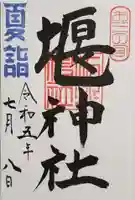 夏詣
堰神社
令和五年
七月八日